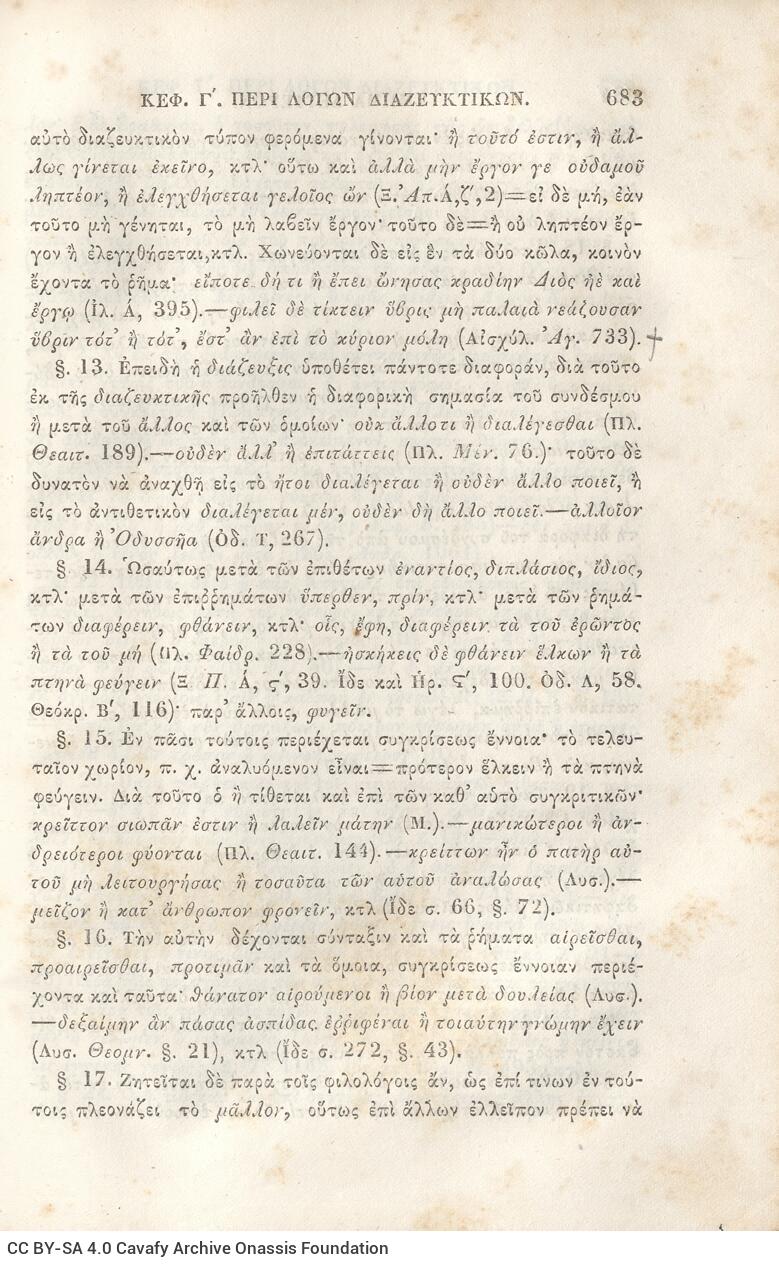 ΚΕΦ. Γ΄. ΠΕΡΙ ΛΟΓΩΝ ΔΙΑΖΕΥΚΤΙΚΩΝ. 683
αὐτὸ διαζευκτικὸν τύπον φερόμενα γίνονται· ἢ τοῦτό ἐστιν, ἢ ἄλ-
λως γίνεται ἐκεῖνο, κτλ· οὕτω καὶ ἀλλὰ μὴν ἔργον γε οὐδαμοῦ
ληπτέον, ἢ ἐλεγχθήσεται γελοῖος ὤν (Ξ. Ἀπ. Ά, ζ΄, 2)=εἰ δὲ μή, ἐὰν
τοῦτο μὴ γένηται, τὸ μὴ λαβεῖν ἔργον· τοῦτο δὲ=ἢ οὐ ληπτέον ἔρ-
γον ἢ ἐλεγχθήσεται, κτλ. Χωνεύονται δὲ εἰς ἓν τὰ δύο κῶλα, κοινὸν
ἔχοντα τὸ ῥῆμα· εἴποτε δή τι ἢ ἔπει ὤνησας κραδίην Διὸς ἠὲ καὶ
ἔργῳ (Ἰλ. Ά, 395).—φιλεῖ δὲ τίκτειν ὕβρις μὴ παλαιὰ νεάζουσαν
ὕβριν τότ' ἢ τότ', ἔστ' ἂν ἐπὶ τὸ κύριον μόλῃ (Αἰσχύλ. Ἀγ. 733).
§. 13. Ἐπειδὴ ἡ διάζευξις ὑποθέτει πάντοτε διαφοράν, διὰ τοῦτο
ἐκ τῆς διαζευκτικῆς προῆλθεν ἡ διαφορικὴ σημασία τοῦ συνδέσμου
ἢ μετὰ τοῦ ἄλλος καὶ τῶν ὁμοίων· οὐκ ἄλλοτι ἢ διαλέγεσθαι (Πλ.
Θεαιτ. 189).—οὐδὲν ἄλλ' ἢ ἐπιτάττεις (Πλ. Μέν. 76.)· τοῦτο δὲ
δυνατὸν νὰ ἀναχθῇ εἰς τὸ ἤτοι διαλέγεται ἢ οὐδὲν ἄλλο ποιεῖ, ἢ
εἰς τὸ ἀντιθετικὸν διαλέγεται μέν, οὐδὲν δὴ ἄλλο ποιεῖ.—ἀλλοῖον
ἄνδρα ἢ Ὀδυσσῆα (Ὀδ. Τ, 267).
§ 14. Ὡσαύτως μετὰ τῶν ἐπιθέτων ἐναντίος, διπλάσιος, ἴδιος,
κτλ· μετὰ τῶν ἐπιῤῥημάτων ὕπερθεν, πρίν, κτλ· μετὰ τῶν ῥημά-
των διαφέρειν, φθάνειν, κτλ· οἷς, ἔφη, διαφέρειν τὰ τοῦ ἐρῶντος
ἢ τὰ τοῦ μή (Πλ. Φαίδρ. 228).—ἠσκήκεις δὲ φθάνειν ἕλκων ἢ τὰ
πτηνὰ φεύγειν (Ξ Π. Ά, ς΄, 39. Ἴδε καὶ Ἡρ. Ϛ΄, 100. Ὀδ. Λ, 58.
Θεόκρ. Β΄, 116)· παρ' ἄλλοις, φυγεῖν.
§. 15. Ἐν πᾶσι τούτοις περιέχεται συγκρίσεως ἔννοια· τὸ τελευ-
ταῖον χωρίον, π. χ. ἀναλυόμενον εἶναι=πρότερον ἕλκειν ἢ τὰ πτηνὰ
φεύγειν. Διὰ τοῦτο ὁ ἢ τίθεται καὶ ἐπὶ τῶν καθ' αὑτὸ συγκριτικῶν·
κρεῖττον σιωπᾶν ἐστιν ἢ λαλεῖν μάτην (Μ.).—μανικώτεροι ἢ ἀν-
δρειότεροι φύονται (Πλ. Θεαιτ. 144).—κρείττων ἦν ὁ πατὴρ αὐ-
τοῦ μὴ λειτουργήσας ἢ τοσαῦτα τῶν αὑτοῦ ἀναλώσας (Λυσ.).—
μεῖζον ἢ κατ' ἄνθρωπον φρονεῖν, κτλ (Ἴδε σ. 66, §. 72).
§. 16. Τὴν αὐτὴν δέχονται σύνταξιν καὶ τὰ ῥήματα αἱρεῖσθαι,
προαιρεῖσθαι, προτιμᾶν καὶ τὰ ὅμοια, συγκρίσεως ἔννοιαν περιέ-
χοντα καὶ ταῦτα· θάνατον αἱρούμενοι ἢ βίον μετὰ δουλείας (Λυσ.).
—δεξαίμην ἂν πάσας ἀσπίδας ἐῤῥιφέναι ἢ τοιαύτην γνώμην ἔχειν
(Λυσ. Θεομν. §. 21), κτλ (Ἴδε σ. 272, §. 43).
§ 17. Ζητεῖται δὲ παρὰ τοῖς φιλολόγοις ἄν, ὡς ἐπί τινων ἐν τού-
τοις πλεονάζει τὸ μᾶλλον, οὕτως ἐπὶ ἄλλων ἐλλεῖπον πρέπει νὰ
CC BY-SA 4.0 Cavafy Archive Onassis Foundation